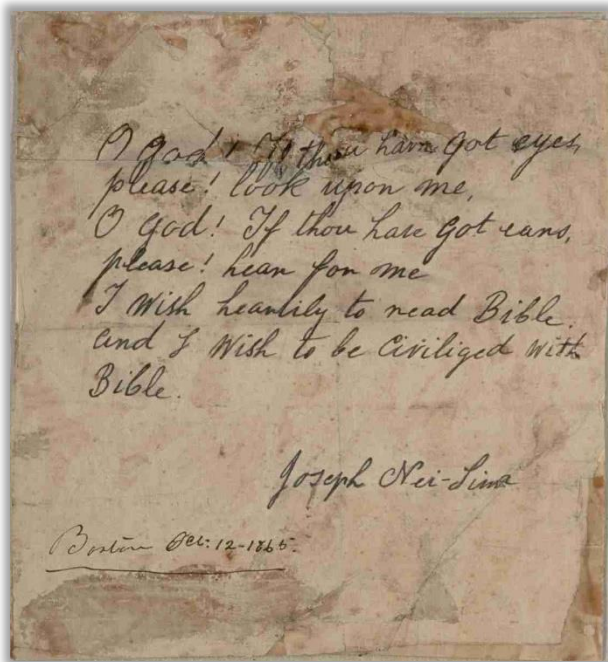 O god! If thou have got eyes,
please! look upon me,
O god! If thou have got ears,
please! hear for me
I wish heartily to read Bible.
and I wish to be civiliged with
Bible.
Joseph Nei-Sima
Boston Oct. 12-1865.